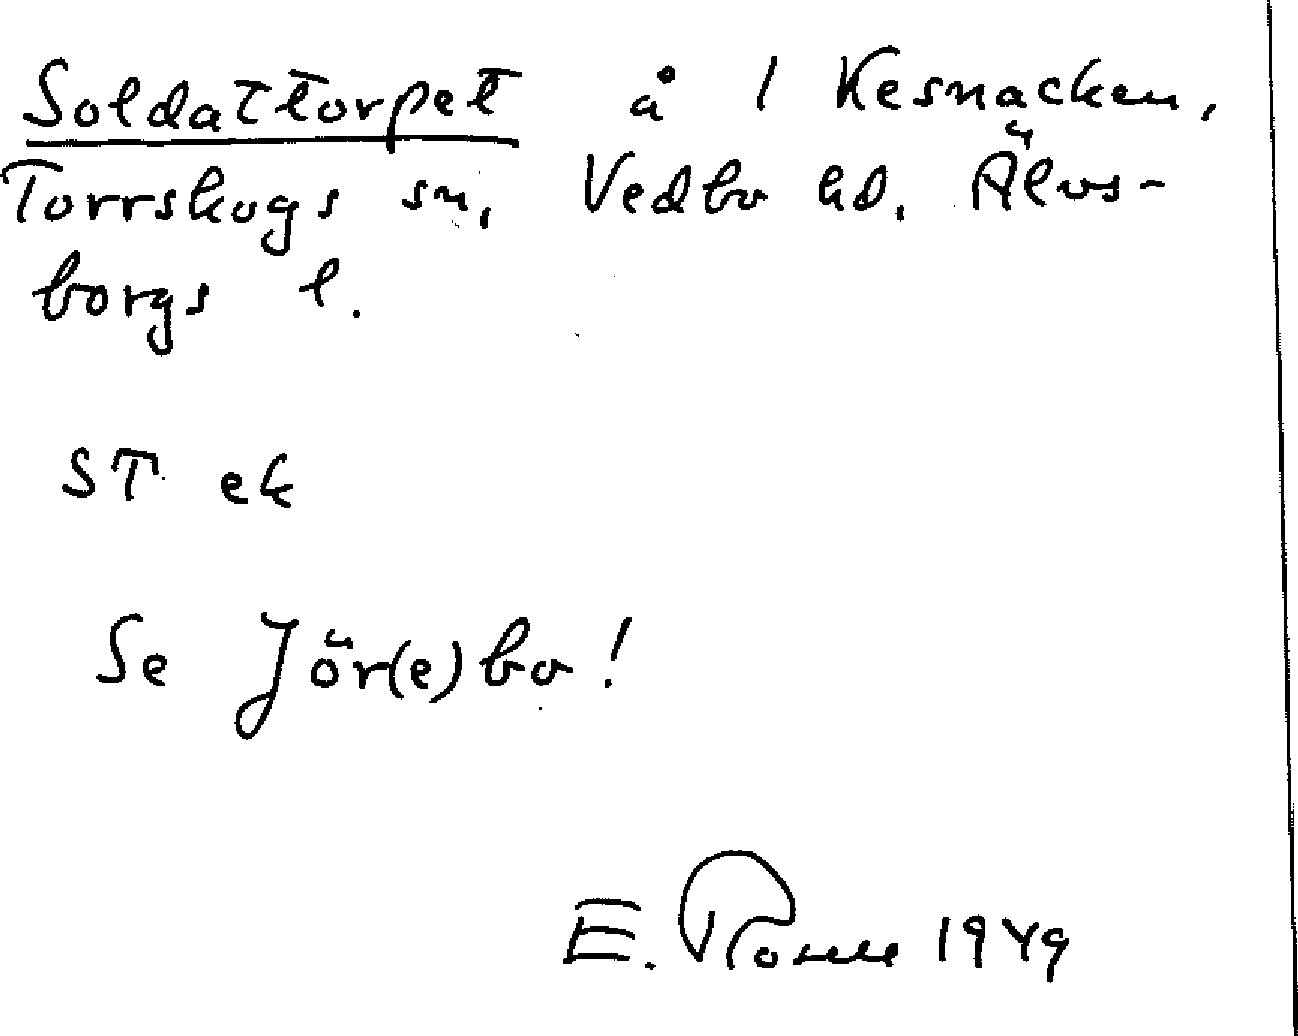 Soldattorpet å 1 Kesnacken,
Torrskogs sn, Vedbo hd. Älvs-
borgs l.
ST ek
Se Jör(e)bo!
E. 1949